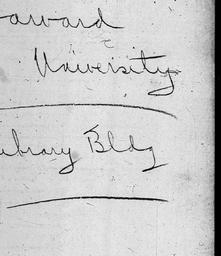 arvard
University
ibrary Bldg